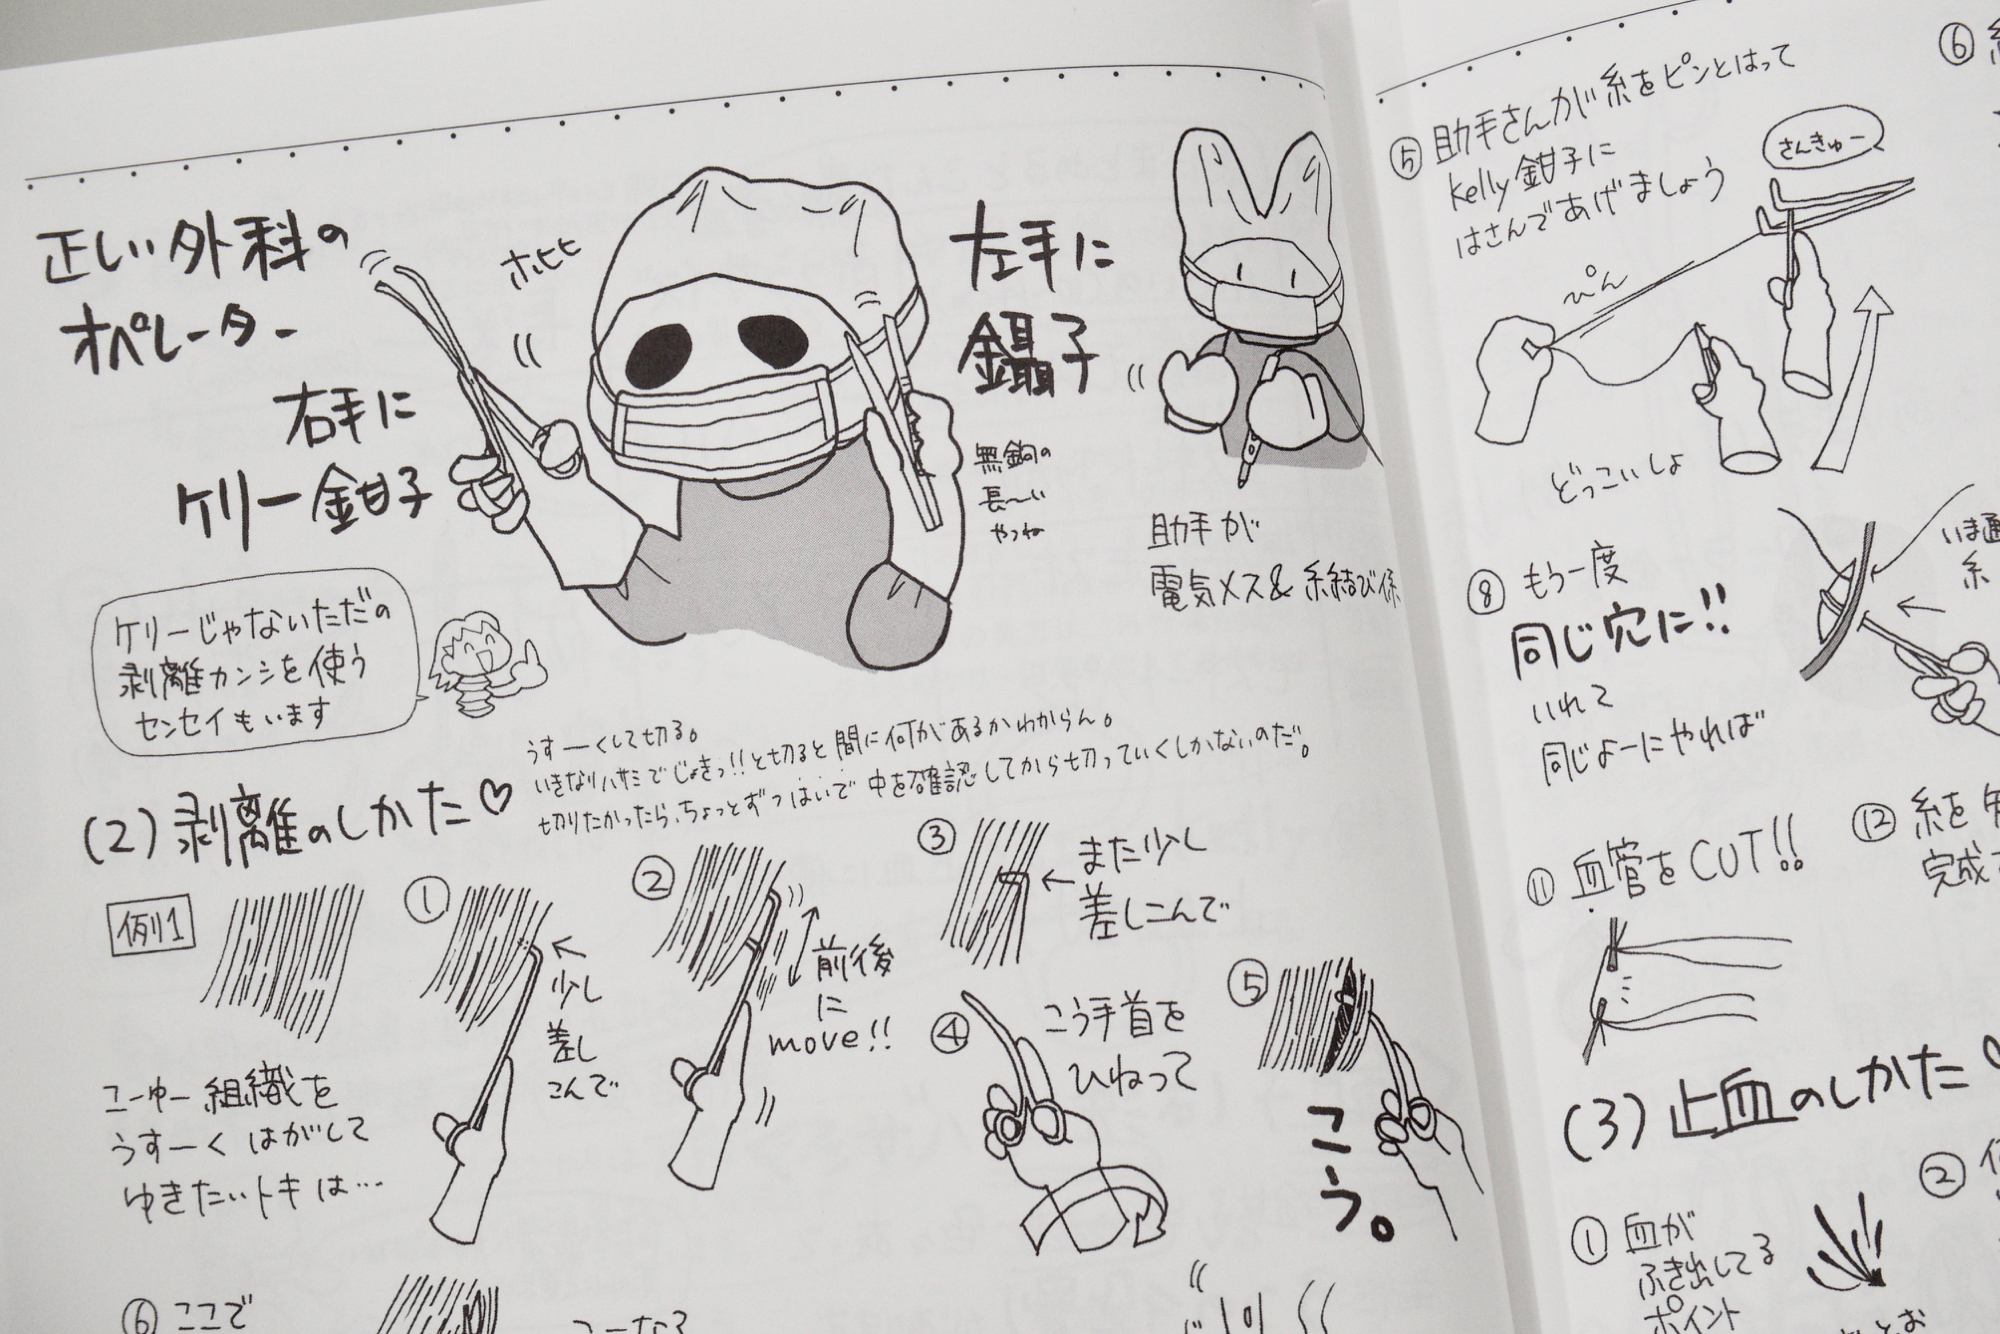 正しい外科の
オペレーター
右手に
ケリー鉗子
ホヒヒ
左手に
鑷子
無鉤の
長〜い
やつね
助手が
電気メス&糸結び係
ケリーじゃないただの
剥離カンシを使う
センセイもいます
(2)剥離のしかた♡
うすーくして切る。
いきなりハサミでじょきっ!!と切ると間に何があるかわからん。
切りたかったら、ちょっとずつはいで中を確認してから切っていくしかないのだ。
例1
こーゆー組織を
うすーくはがして
ゆきたいトキは…
①
←
少し
差し
こんで
②
前後
に
move!!
③
←また少し
差しこんで
④
こう手首を
ひねって
⑤
こう。
⑥ここで
こーなる
⑤助手さんが糸をピンとはって
Kelly鉗子に
はさんであげましょう
さんきゅー
ぴん
どっこいしょ
⑥
⑧もう一度
同じ穴に!!
いれて
同じよーにやれば
いま通
糸
⑪血管をCUT!!
⑫糸を
完成
(3)止血のしかた♡
①血が
ふき出してる
ポイント
②